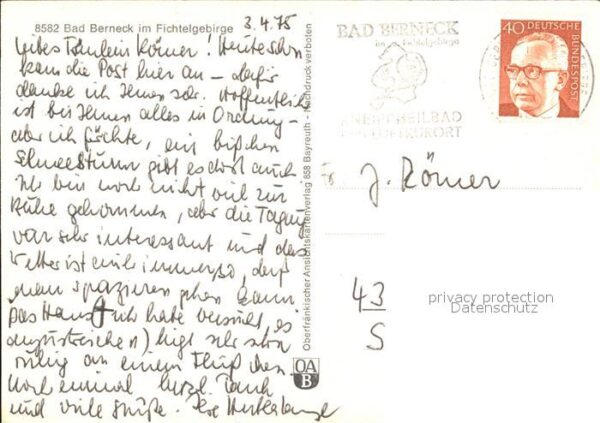 8582 Bad Berneck im Fichtelgebirge
3.4.75
Liebes Fräulein Römer! Heute schon
kam die Post hier an – dafür
danke ich Ihnen sehr. Hoffentlich
ist bei Ihnen alles in Ordnung –
aber ich fürchte, ein bißchen
Schneesturm gibt es dort auch.
Ich bin noch nicht viel zur
Ruhe gekommen, aber die Tagung
war sehr interessant und das
Wetter ist immerso, daß
man spazieren gehen kann.
Das Haus (ich habe versucht, es
anzustreichen) liegt sehr schön
ruhig an einem Fluß
Noch einmal herzl. Dank
und viele Grüße. Ihre
Oberfränkischer Ansichtskartenverlag 858 Bayreuth - Nachdruck verboten
OA
B
BAD BERNECK
im Fichtelgebirge
KNEIPPHEILBAD
LUFTKURORT
40 DEUTSCHE
BUNDESPOST
J. Römer
43
S
privacy protection
Datenschutz